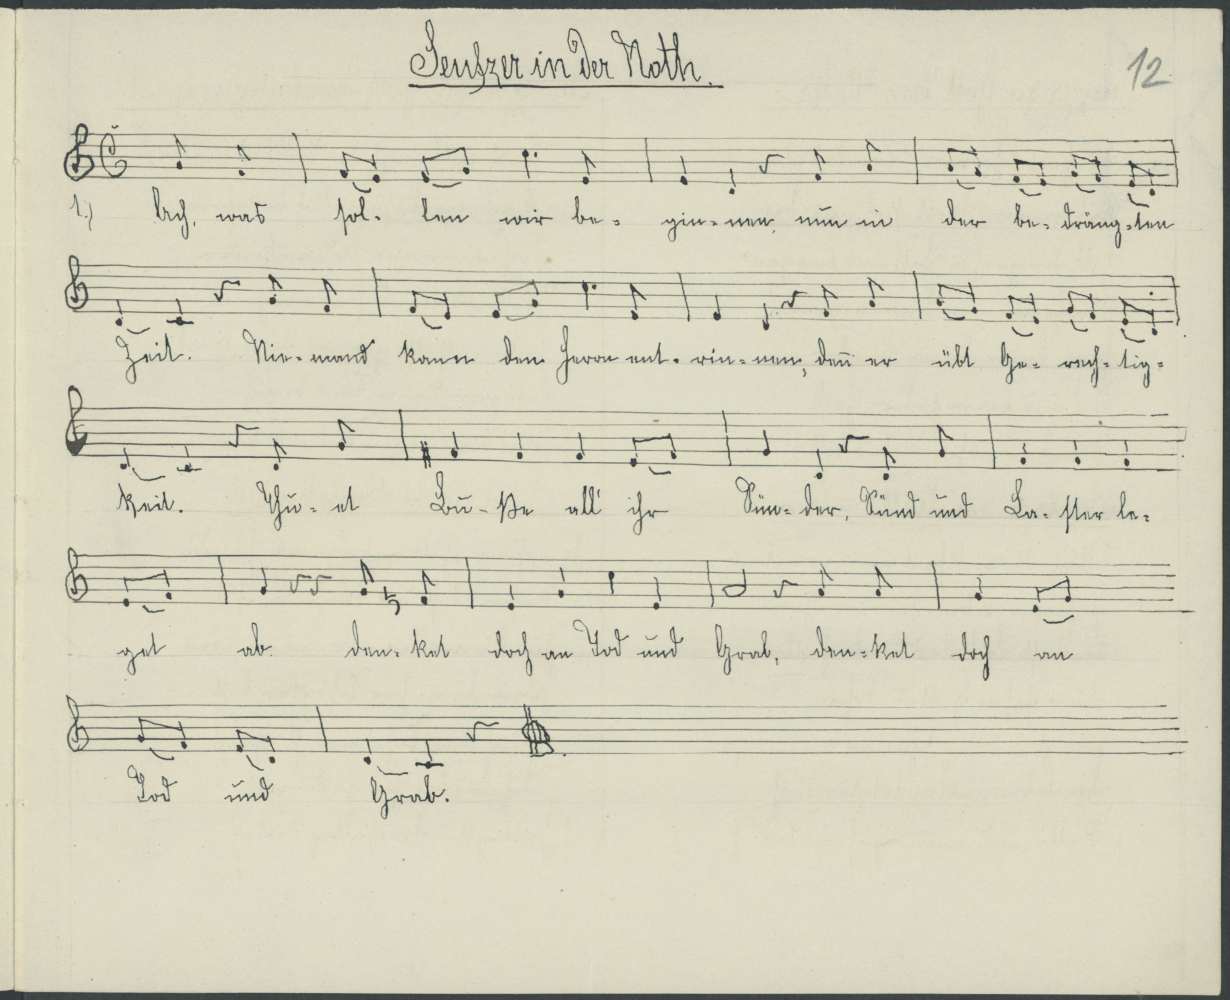 Seufzer in der Noth.
12
1.) Ach, was sol- len wir be- gin- nen, nun in der be- dräng- ten
Zeit. Nie- mand kann dem Herrn ent- rin- nen, deñ er übt Ge- rech- tig-
keit. Thu- et Bu- ße all' ihr Sün- der, Sünd und La- ster le-
get ab. den- ket doch an Tod und Grab, den- ket doch an
Tod und Grab.